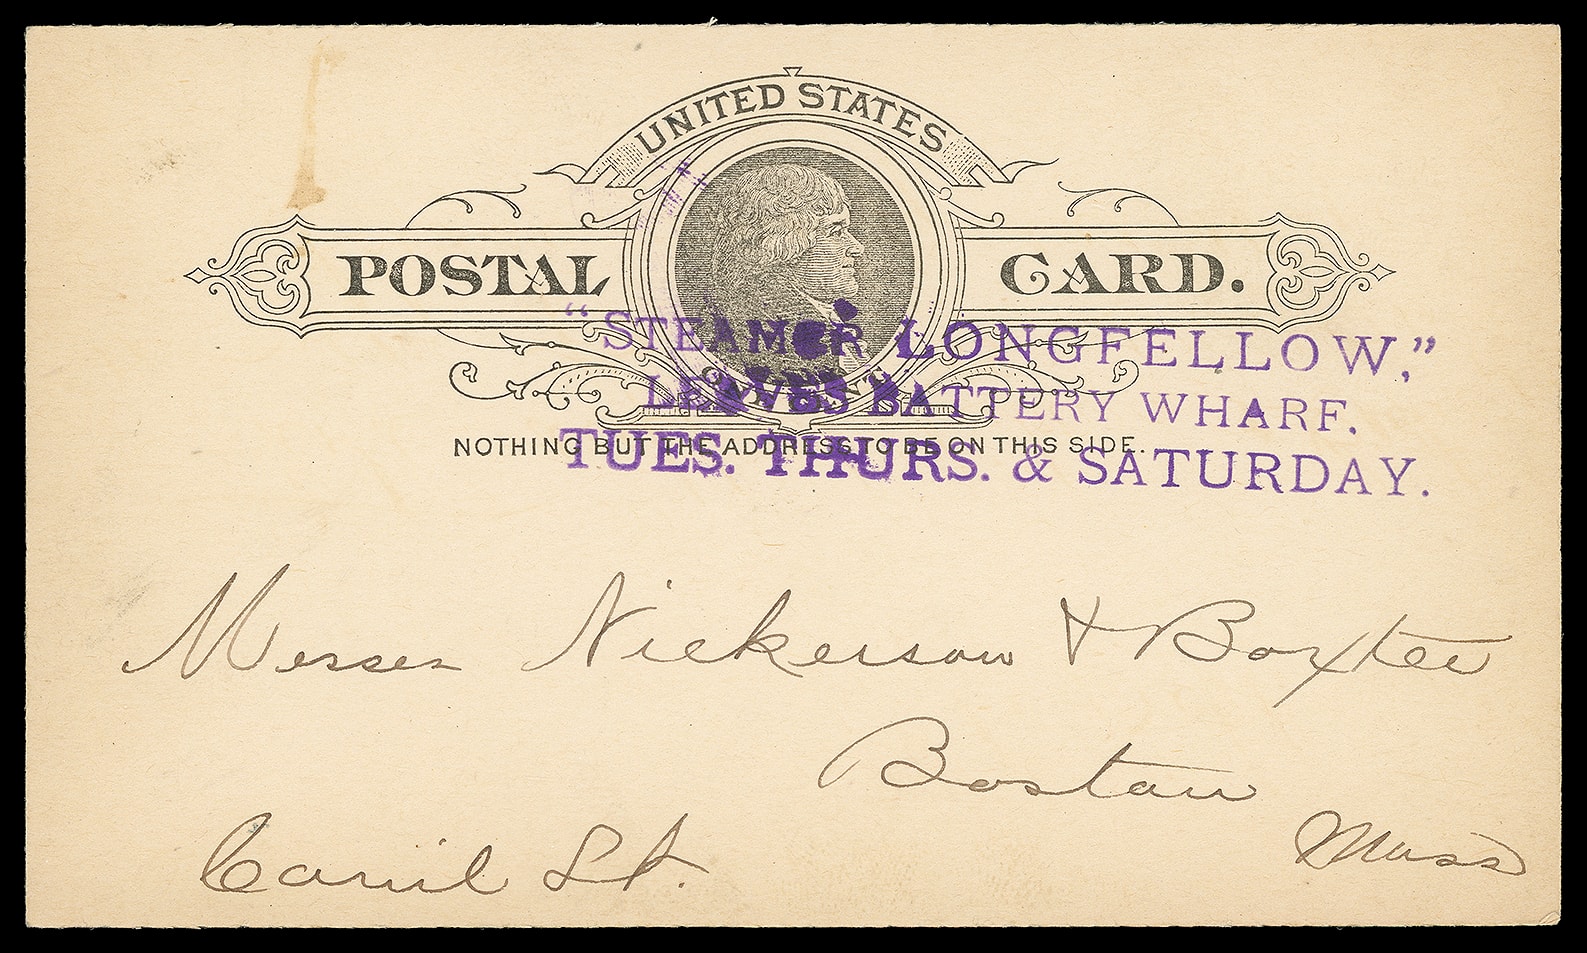 UNITED STATES
POSTAL CARD.
ONE CENT
"STEAMER LONGFELLOW,"
LEAVES BATTERY WHARF.
NOTHING BUT THE ADDRESS TO BE ON THIS SIDE.
TUES. THURS. & SATURDAY.
Messer Nickerson & Baxter
Boston
Mass
Canil St.